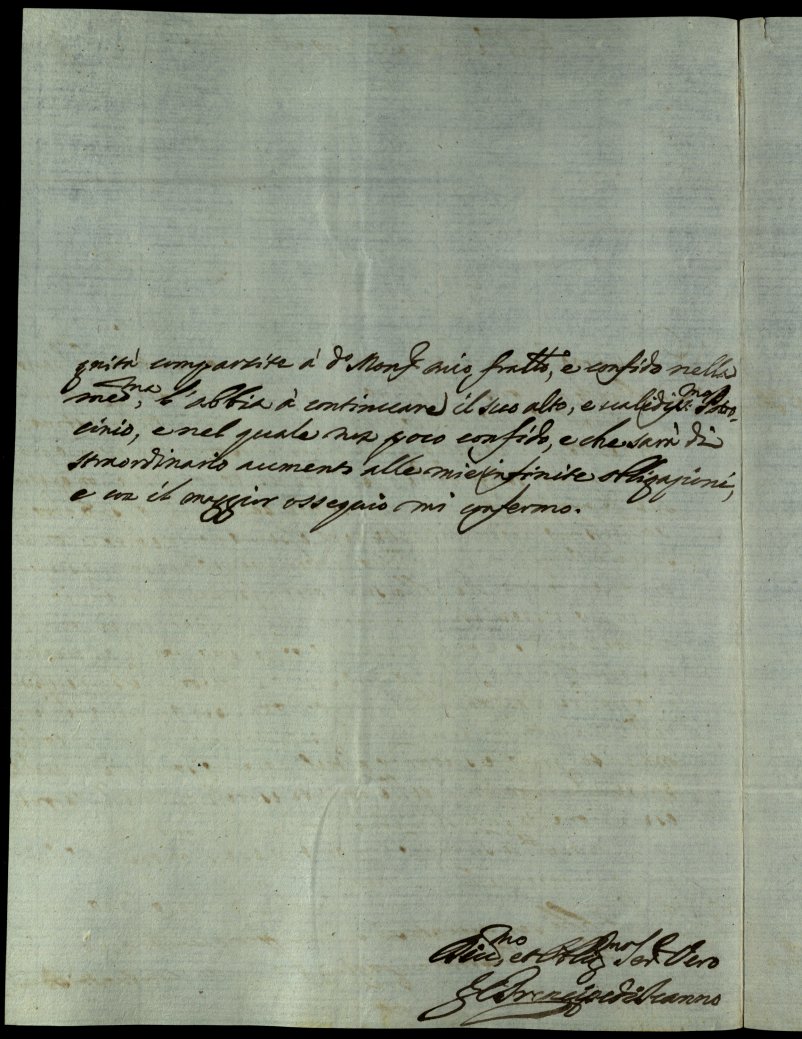 gnità compartite à d.º Mons.r mio fratto, e confido nella
med.ma, l'abbia à continuare il suo alto, e validis.mo Patro-
cinio, e nel quale non poco confido, e che sarà di
straordinario aumento alle mie infinite obligazioni,
e con il maggior ossequio mi confermo.
Div.mo, et Oblig.mo Ser.r Vero
Il Prencipe di Scanno